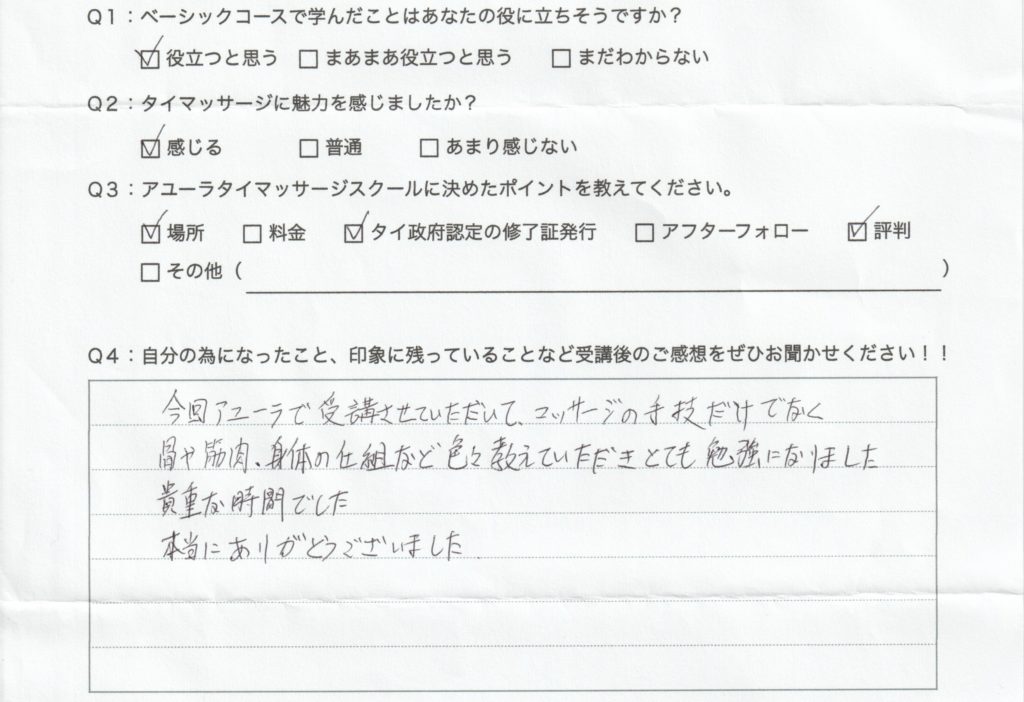 Q1：ベーシックコースで学んだことはあなたの役に立ちそうですか？
☑役立つと思う □まあまあ役立つと思う □まだわからない
Q2：タイマッサージに魅力を感じましたか？
☑感じる □普通 □あまり感じない
Q3：アユーラタイマッサージスクールに決めたポイントを教えてください。
☑場所 □料金 ☑タイ政府認定の修了証発行 □アフターフォロー ☑評判
□その他（ ）
Q4：自分の為になったこと、印象に残っていることなど受講後のご感想をぜひお聞かせください！！
今回アユーラで受講させていただいて、マッサージの手技だけでなく
骨や筋肉、身体の仕組など色々教えていただきとても勉強になりました
貴重な時間でした
本当にありがとうございました.